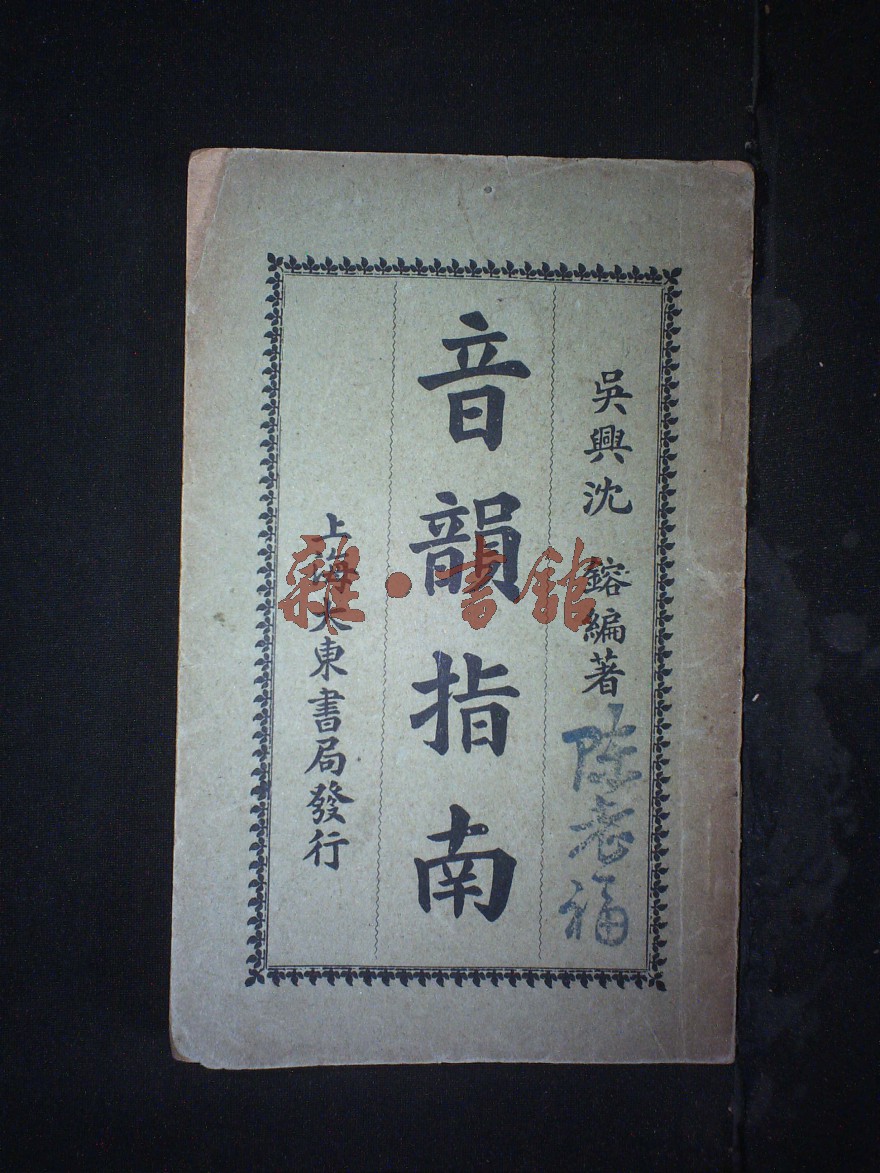 吳興沈 鎔編著
陳老福
音韻指南
上海大東書局發行
雜·書館